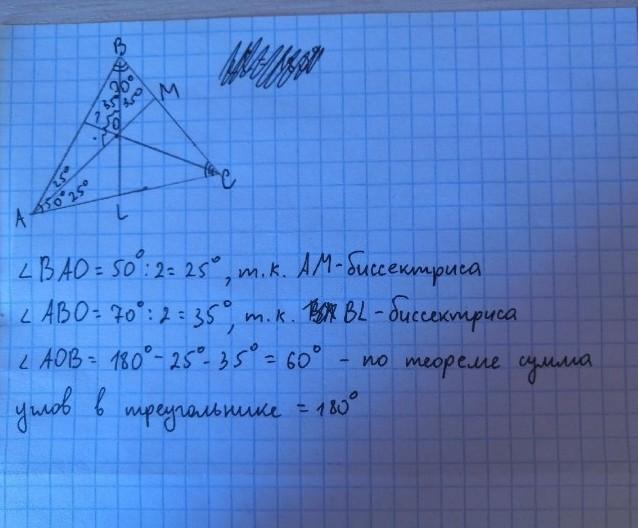 B
70°
35° 35°
M
?
O
25°
50° 25°
A
L
C
∠BAO = 50° : 2 = 25°, т.к. AM - биссектриса
∠ABO = 70° : 2 = 35°, т.к. BL - биссектриса
∠AOB = 180° - 25° - 35° = 60° - по теореме сумма
углов в треугольнике = 180°